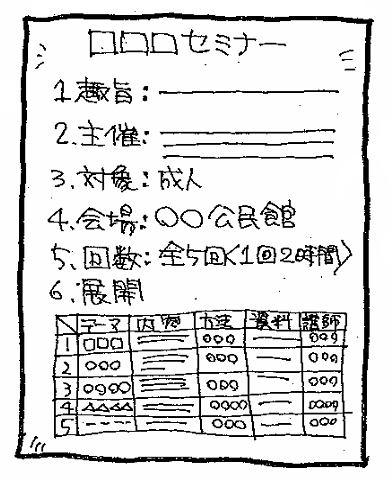 □□□セミナー
1.趣旨:
2.主催:
3.対象:成人
4.会場:○○公民館
5.回数:全5回〈1回2時間〉
6.展開
テーマ 内容 方法 資料 講師
1 □□□ ○○○ ○○○
2 ○○○ ○○○ ○○○
3 ○○○○ ○○○ ○○○
4 △△△△ ○○○○ ○○○○
5 ---- ○○○ ○○○